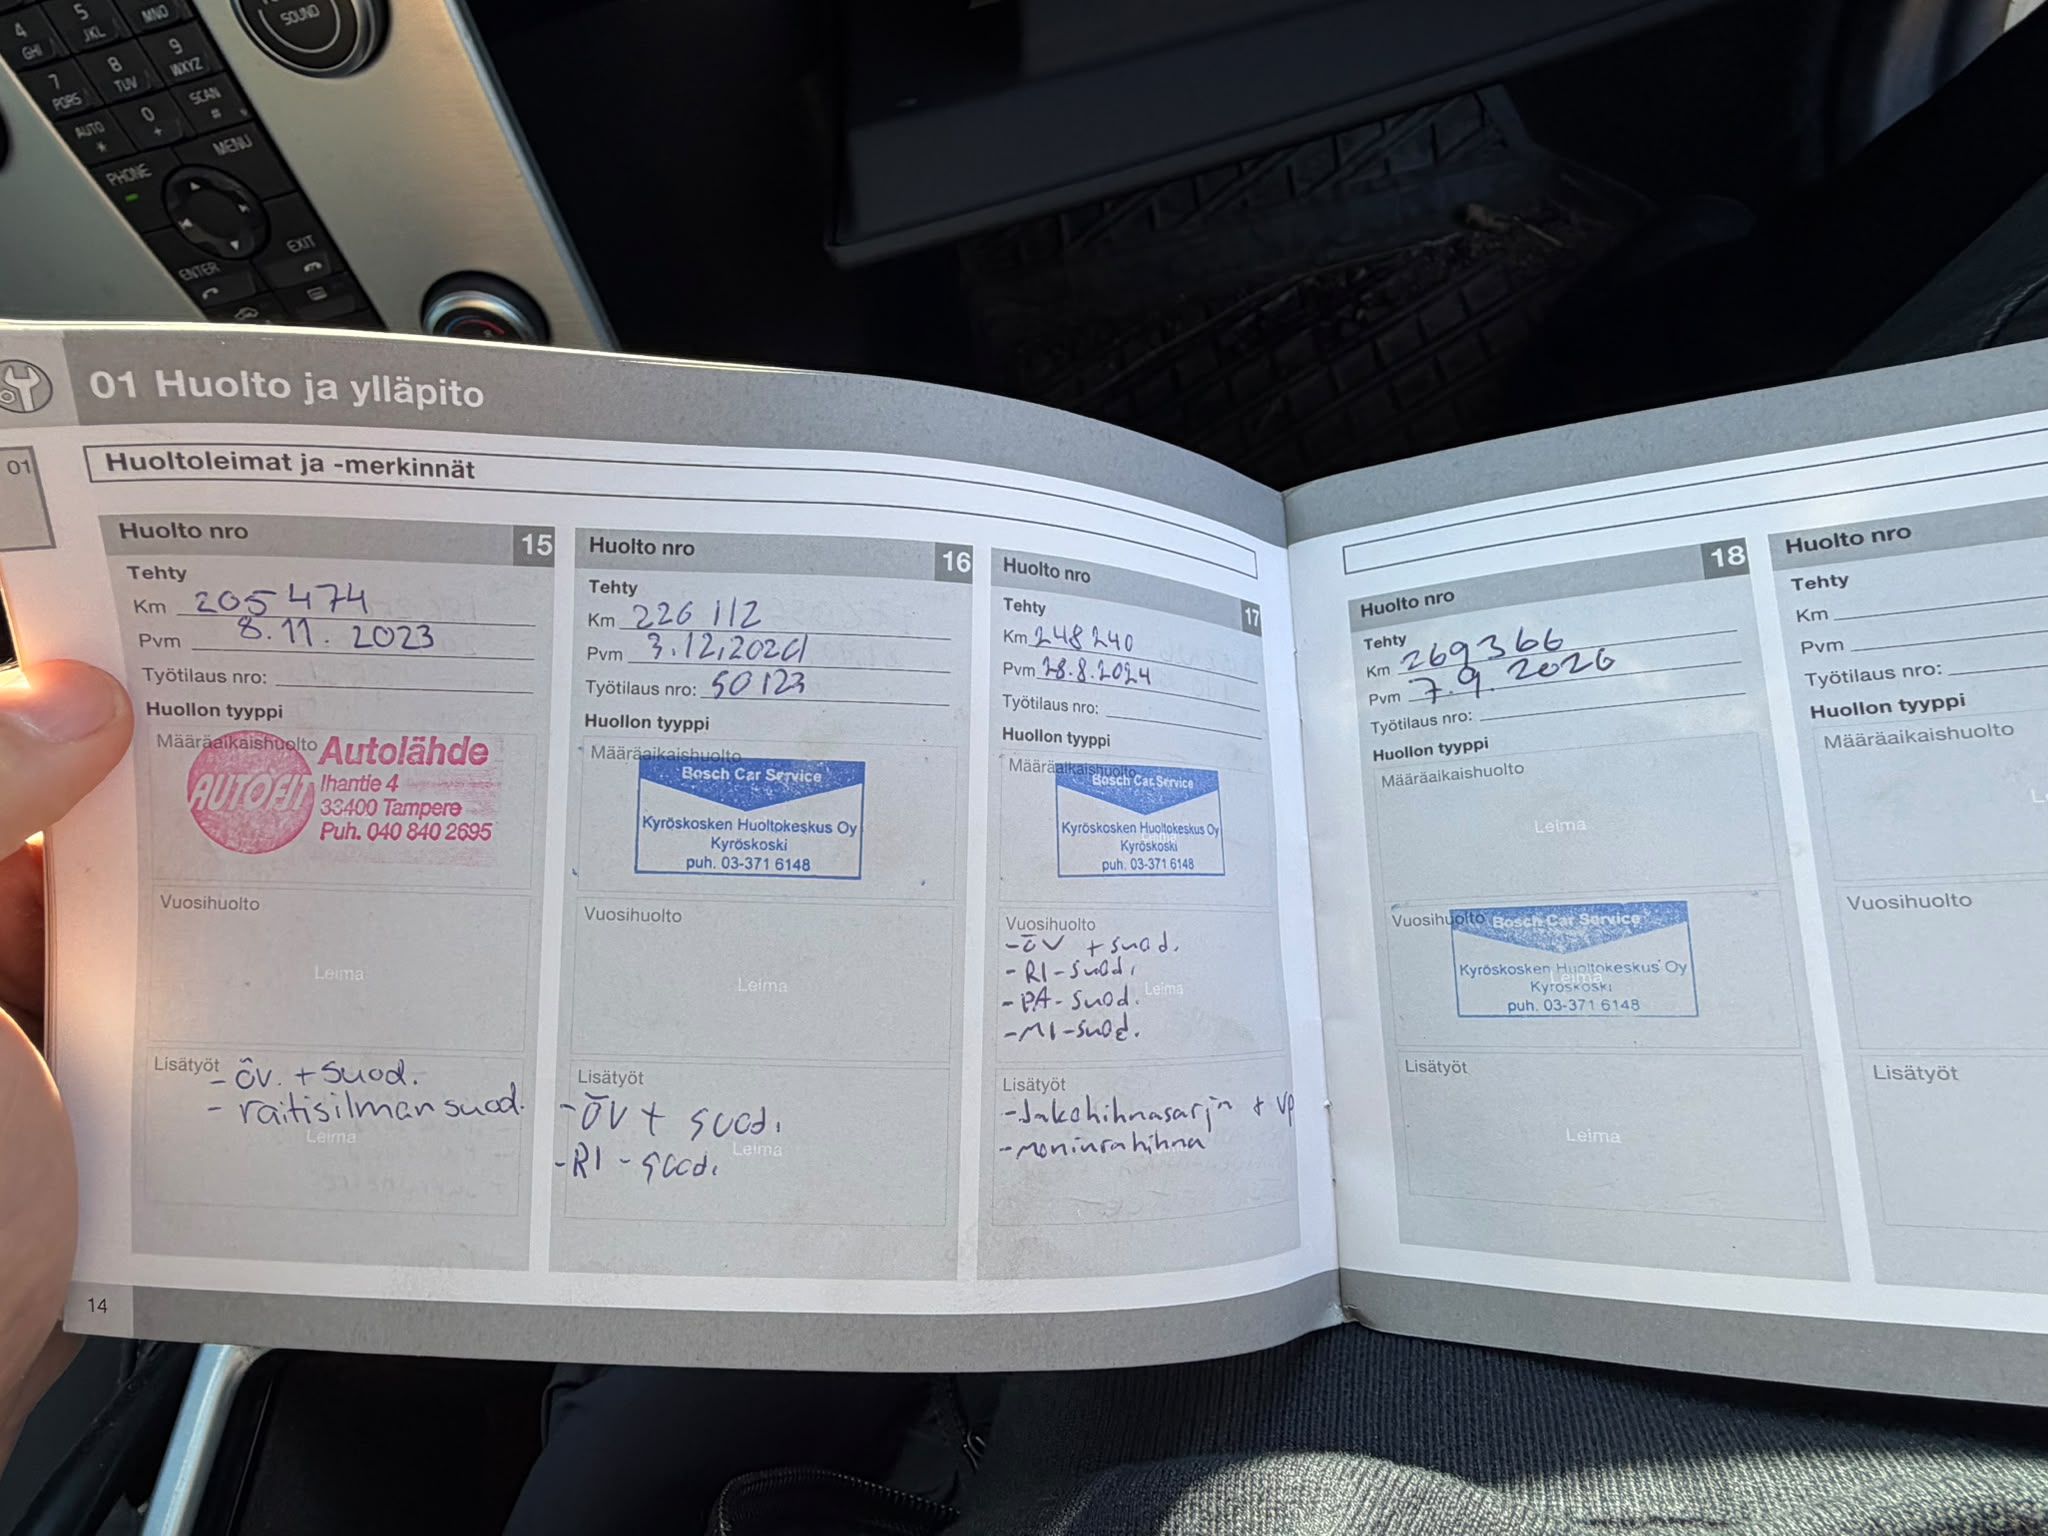 4 GHI
5 JKL
MNO
7 PQRS
8 TUV
9 WXYZ
AUTO *
0 +
SCAN #
SOUND
PHONE
MENU
ENTER
EXIT
01 Huolto ja ylläpito
01
Huoltoleimat ja -merkinnät
Huolto nro 15
Tehty
Km 205 474
Pvm 8.11.2023
Työtilaus nro:
Huollon tyyppi
Määräaikaishuolto
AUTOFIT
Autolähde
Ihantie 4
33400 Tampere
Puh. 040 840 2695
Vuosihuolto
Leima
Lisätyöt
- öv. + suod.
- raitisilmansuod.
Leima
Huolto nro 16
Tehty
Km 226 112
Pvm 3.12.202
Työtilaus nro: 50123
Huollon tyyppi
Määräaikaishuolto
Bosch Car Service
Kyröskosken Huoltokeskus Oy
Kyröskoski
puh. 03-371 6148
Vuosihuolto
Leima
Lisätyöt
- ÖV + suod.
- RI - suod.
Leima
Huolto nro 17
Tehty
Km 248240
Pvm 28.8.2024
Työtilaus nro:
Huollon tyyppi
Määräaikaishuolto
Bosch Car Service
Kyröskosken Huoltokeskus Oy
Kyröskoski
puh. 03-371 6148
Vuosihuolto
- öv + suod.
- RI - suod.
- PA - suod.
- MI - suod.
Leima
Lisätyöt
- Jakohihnasarja + vp
- moniurahihna
14
Huolto nro 18
Tehty
Km 269366
Pvm 7.9.2026
Työtilaus nro:
Huollon tyyppi
Määräaikaishuolto
Leima
Vuosihuolto
Bosch Car Service
Kyröskosken Huoltokeskus Oy
Kyröskoski
puh. 03-371 6148
Leima
Lisätyöt
Leima
Huolto nro
Tehty
Km
Pvm
Työtilaus nro:
Huollon tyyppi
Määräaikaishuolto
Vuosihuolto
Lisätyöt